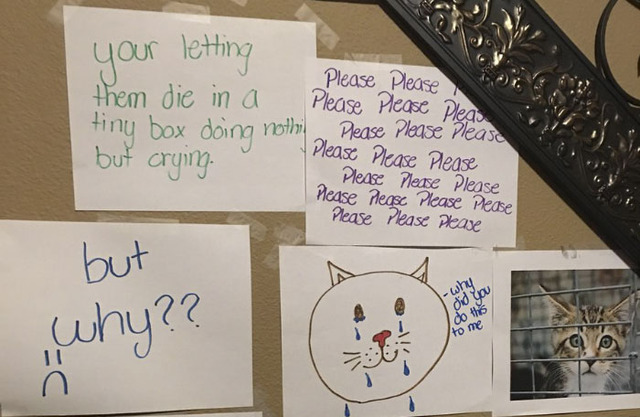 your letting
them die in a
tiny box doing
but crying.
Please Please
Please Please Please
Please Please Please
Please Please Please
Please Please Please
Please Please Please Please
Please Please Please
but
why??
-why
did you
do this
to me